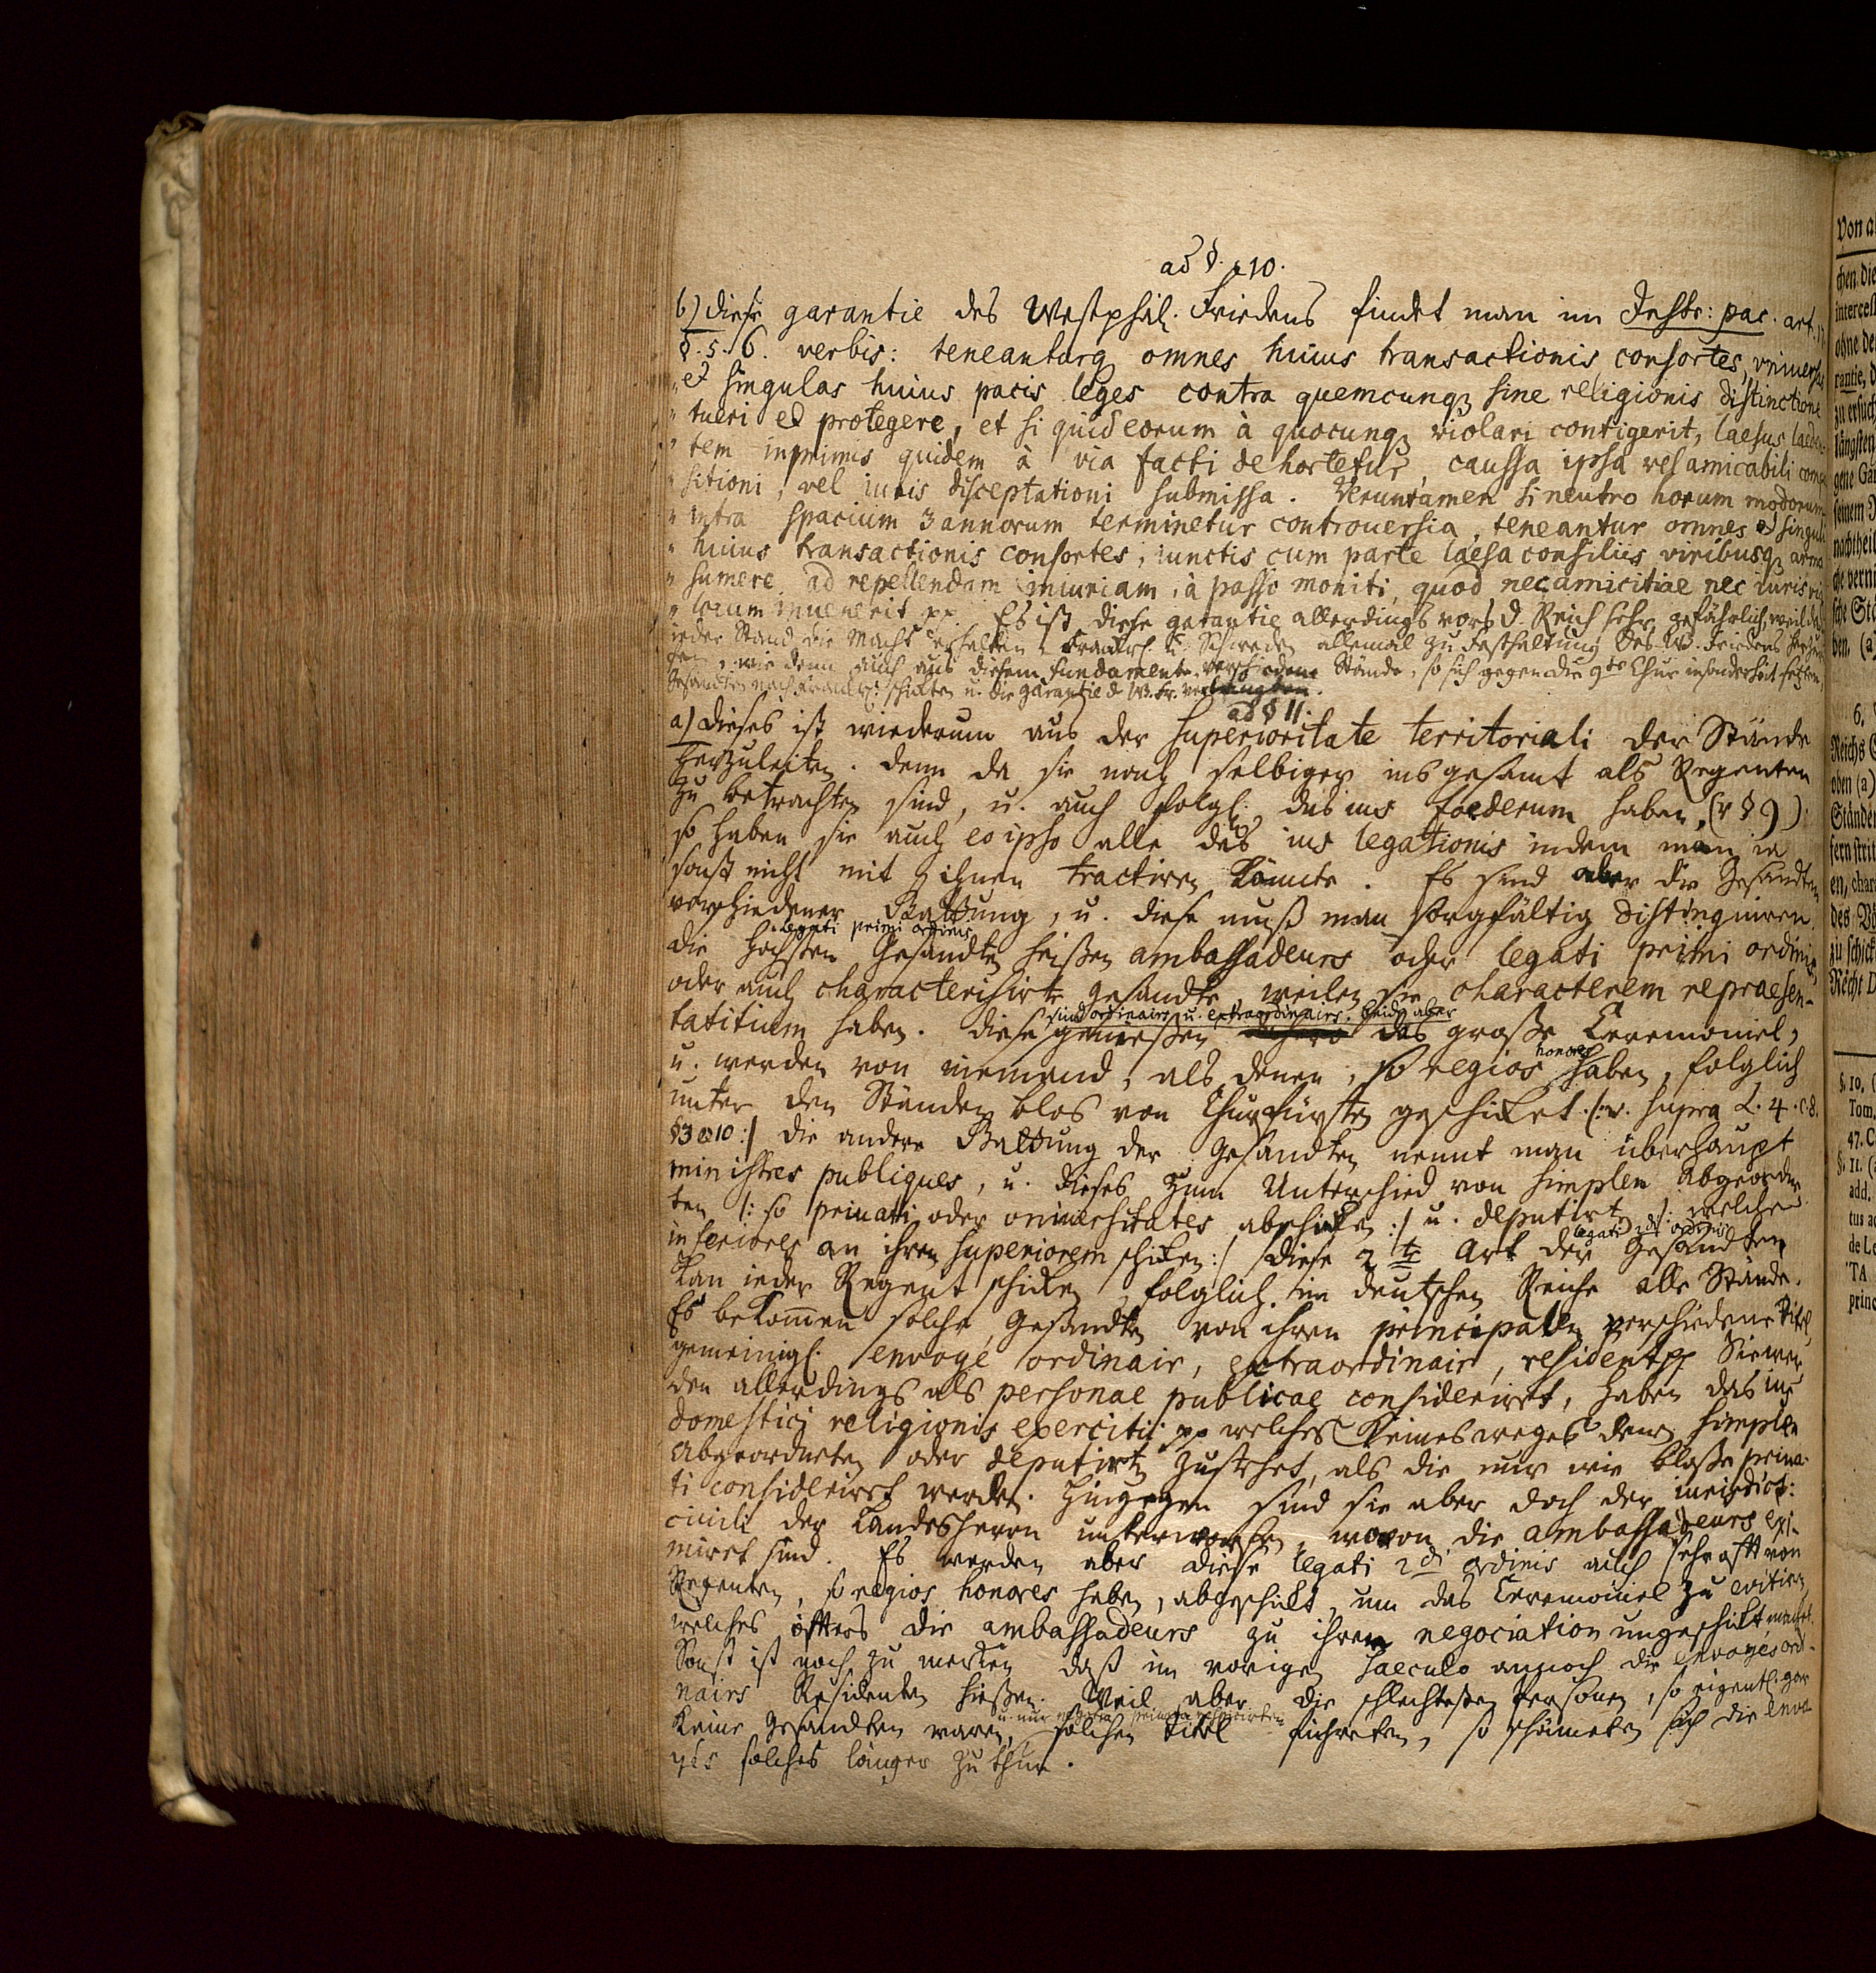 ad §. 10.
b) Diese garantie des Westphäl. Friedens findet man im Instr: pac. art. 17
§. 5. 6. verbis: teneanturq omnes huius transactionis consortes, universas
" et singulas huius pacis leges contra quemcunq sine religionis distinctione
" tueri et protegere, et si quid eorum à quocunq violari contigerit, laesus laeden-
" tem inprimis quidem à via facti dehortetur, caussa ipsa vel amicabili compo-
" sitioni, vel iuris disceptationi submissa. Veruntamen si neutro horum modorum
" intra spacium 3 annorum terminetur controuersia, teneantur omnes et singuli
" huius transactionis consortes, iunctis cum parte laesa consiliis viribusq arma
" sumere ad repellendam iniuriam, à passo moniti, quod nec amicitiae nec iuris via
" locum inuenerit pp. Es ist diese garantie allerdings vors d. Reich sehr gefährlich, weil da
ieder Stand die Macht erhalten Frankr. u. Schweden allemal zu Festhaltung des W. Friedens
wie denn auch aus diesem fundamente verschiedene Stände, so sich gegen die 9te Chur insonderheit setzten,
Gesandten nach Frankr: schickten u. die garantie d W. Fr. verlangten.
ad § 11.
a) Dieses ist wiederum aus der superioritate territoriali der Stände
herzuleiten. Denn da sie nach selbiger insgesamt als Regenten
zu betrachten sind, u. auch folgl. das ius foederum haben, (v § 9)
so haben sie auch eo ipso alle das ius legationis indem man ia
sonst nicht mit ihnen tractiren könnte. Es sind aber die Gesandten
verschiedener Gattung, u. diese muß man sorgfältig distinguiren.
legati primi ordinis
Die höchsten Gesandten heißen ambassadeurs oder legati primi ordinis
oder auch characterisirte gesandte, weilen sie characterem repraesen-
sind ordinairs u. extraordinairs. beide aber
tatitium haben. Diese geniessen das große Ceremoniel,
honores
u. werden von niemand, als denen, so regios haben, folglich
unter den Ständen blos von Churfürsten geschicket. /: v. supra L. 4. c. 8.
§ 3 10 :/ Die andere Gattung der Gesandten nennt man überhaupt
ministres publiques, u. dieses zum Unterschied von simplen Abgeordne-
ten /: so priuati oder vniuersitates abschicken :/ u. deputirten /: welche
legati 2di ordinis
inferiores an ihren superiorem schicken :/ Diese 2te Art der Gesandten
kan ieder Regent schicken, folglich im deutschen Reiche alle Stände.
Es bekommen solche Gesandten von ihren principalen verschiedene Titel,
gemeinigl. envoyé ordinair, extraordinair, resident pp Sie wer-
den allerdings als personae publicae consideriret, haben das ius
domestici religionis exercitii pp welches keinesweges denen simplen
Abgeordneten oder deputirten zustehet, als die nur wie bloße priua-
ti consideriret werden. Hingegen sind sie aber doch der iurisdict:
ciuili der Landesherrn unterworfen, wovon die ambassadeurs exi-
mirt sind. Es werden aber diese legati 2di ordinis auch sehr offt von
Regenten, so regios honores haben, abgeschickt, um das Ceremoniel zu evitiren
welches öfters die ambassadeurs zu ihren negociation ungeschickt machet.
Sonst ist noch zu merken daß im vorigen saeculo annoch die envoyés ordi-
nairs Residenten hießen. Weil aber die schlechtesten Personen, so eigentl. gar
u. nur negotia priuata
keine Gesandten waren, solchen Titel führeten, so schämeten sich die envo-
yés solches länger zu thun.
Von a
chen die
ohne de
rantie, d
zu ersuch
längsten
gene Ga
seinem
nachtheil
ben. (a)
6.
Reichs
oben (a)
Stände
fern strit
en, char
zu schick
Recht D
§. 10. (
Tom.
47. C
§. 11. (
add.
tus a
de L
TA
princ